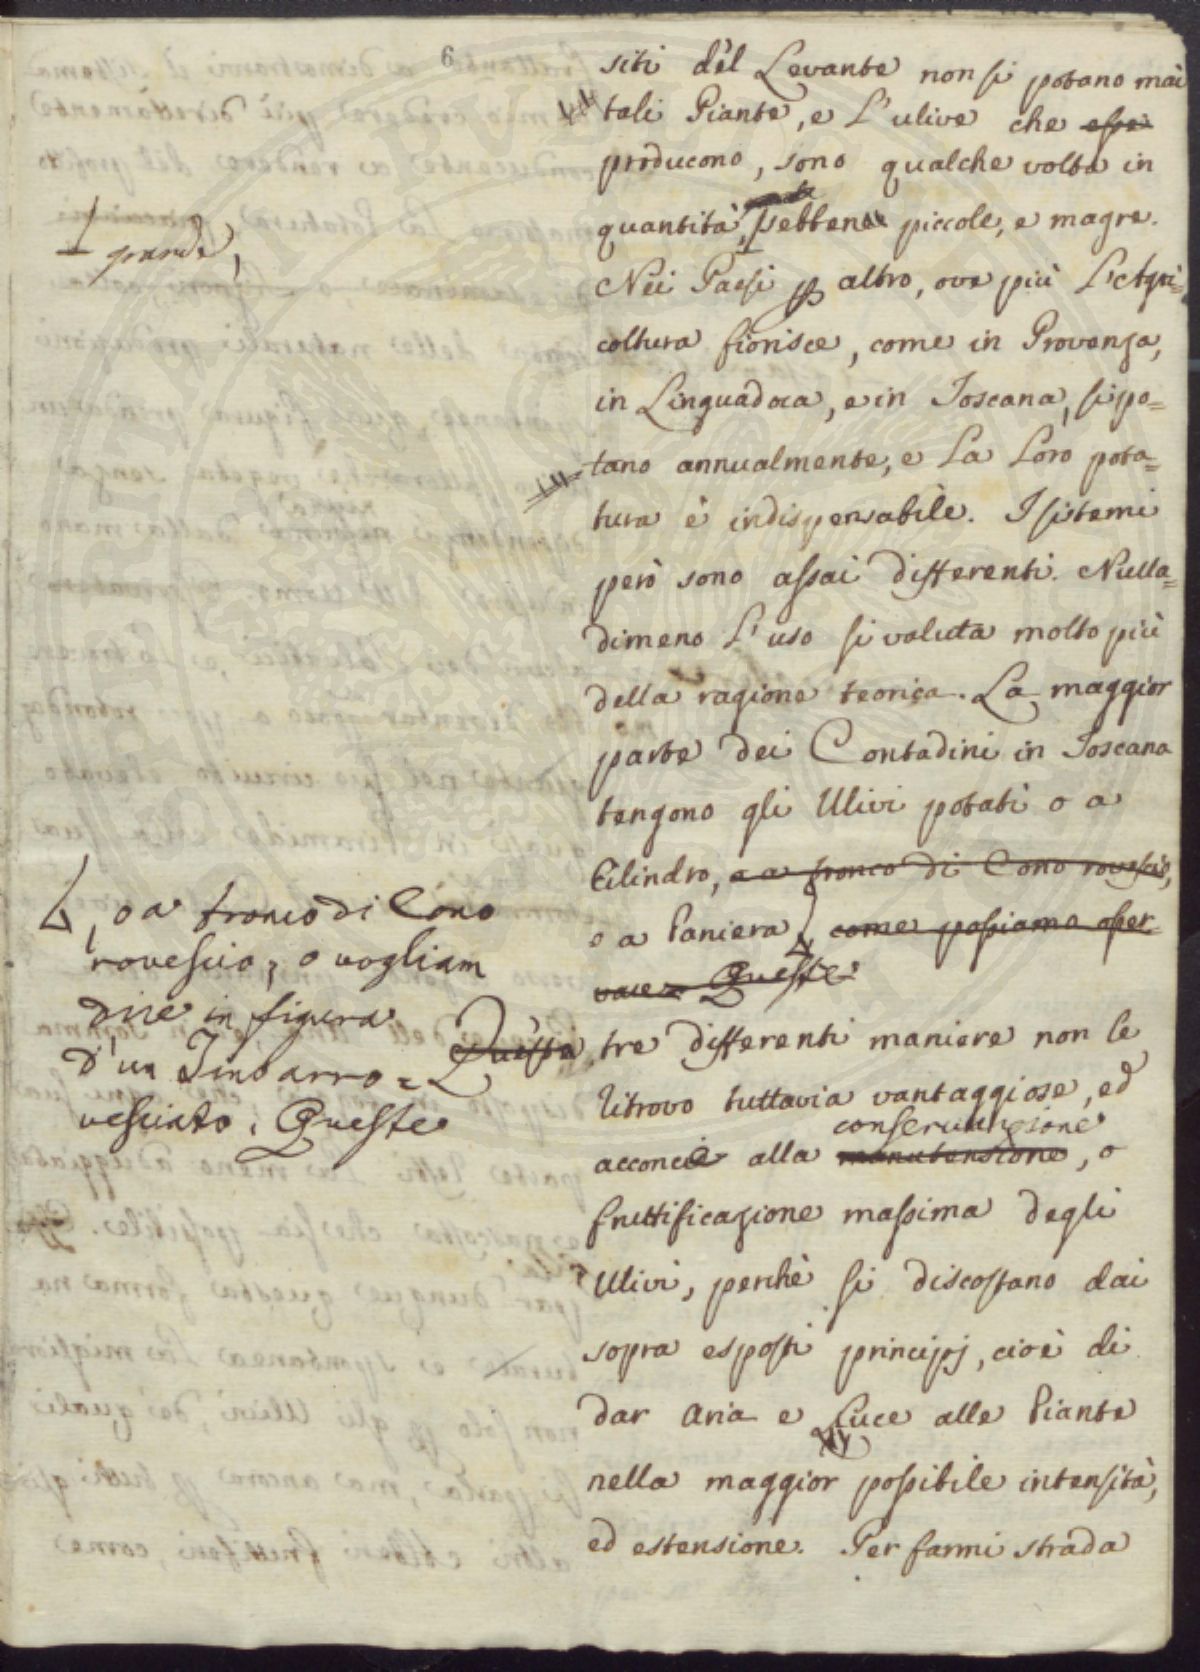 6
siti del Levante non si potano mai
tali Piante, e L'ulive che esse
producono, sono qualche volta in
quantità, sebbene piccole, e magre.
grande,
Nei Paesi p altro, ove più L'Agri=
coltura fiorisce, come in Provenza,
in Linguadoca, e in Toscana, si po=
tano annualmente, e La Loro pota=
tura è indispensabile. I sistemi
però sono assai differenti. Nulla=
dimeno L'uso si valuta molto più
della ragione teorica. La maggior
parte dei Contadini in Toscana
tengono gli Ulivi potati o a
Cilindro, o a tronco di Cono rovescio,
o a Paniera, come possiamo osser=
vare = Queste
, o a tronco di Cono
rovescio, o vogliam
dire in figura
d'un Imbarro=
vesciato. Queste
Queste tre differenti maniere non le
ritrovo tuttavia vantaggiose, ed
conservazione
acconcie alla manutensione, o
fruttificazione massima degli
Ulivi, perchè si discostano dai
sopra esposti principj, cioè di
dar Aria e Luce alle Piante
nella maggior possibile intensità,
ed estensione. Per farmi strada